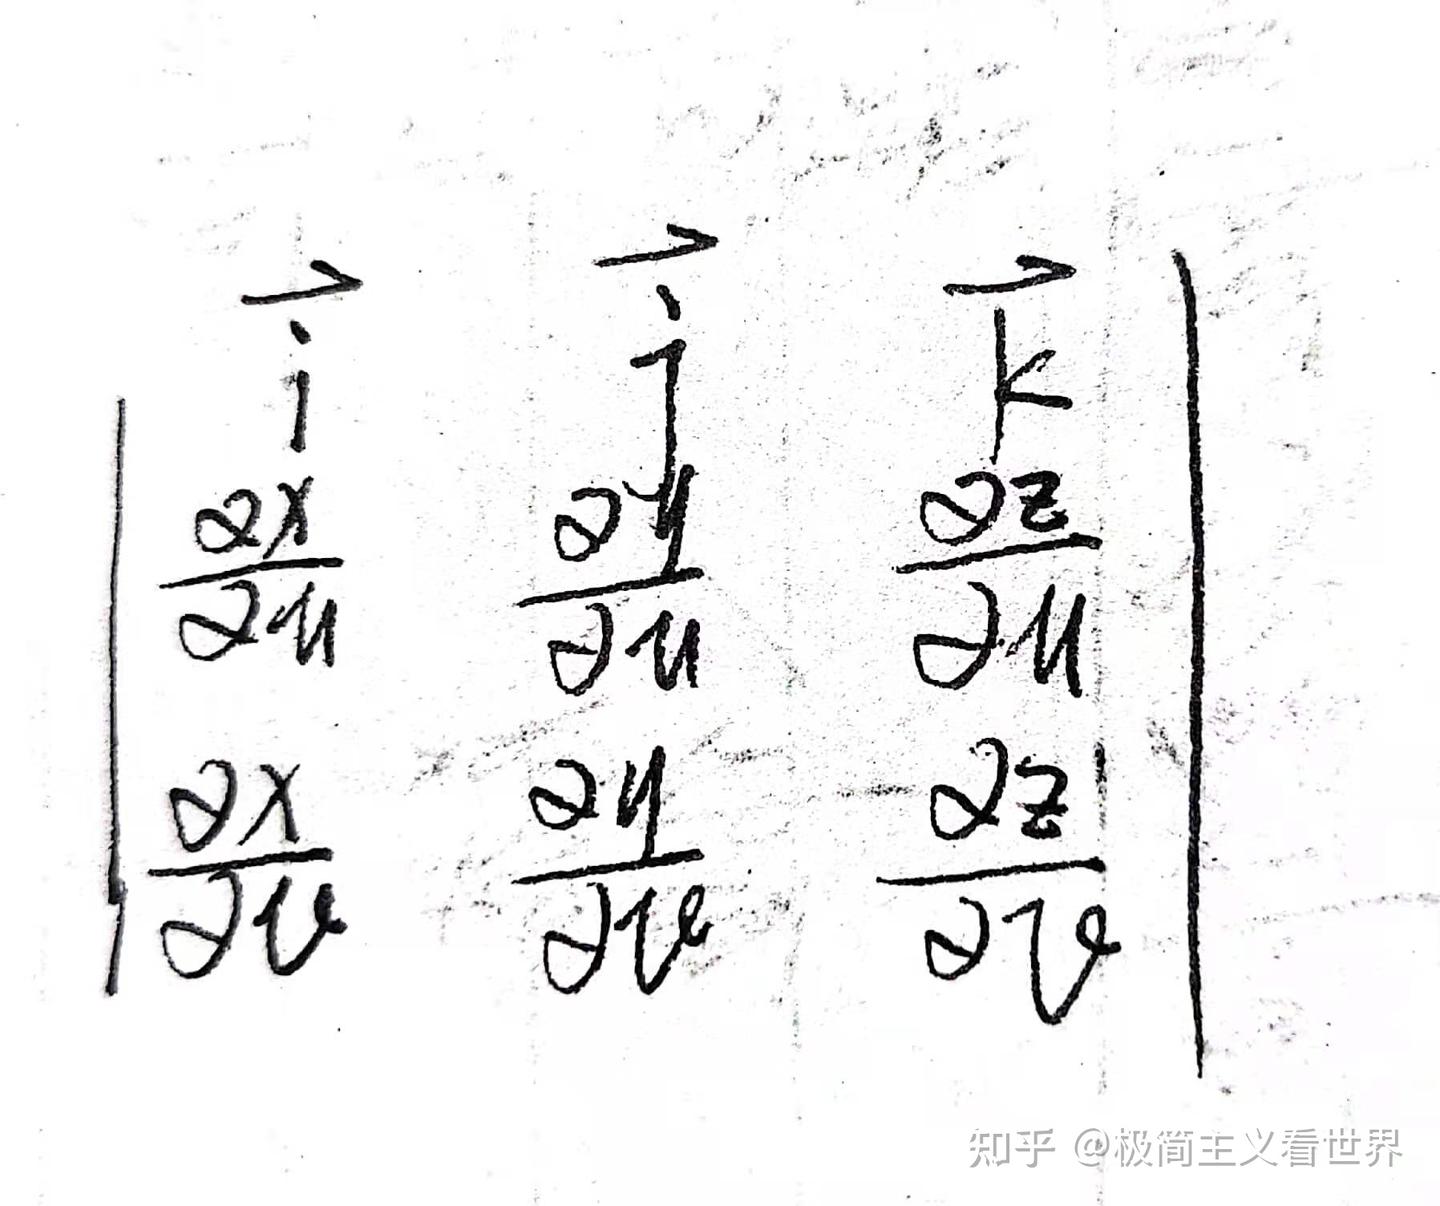 | i⃗ j⃗ k⃗ |
| ∂x/∂u ∂y/∂u ∂z/∂u |
| ∂x/∂v ∂y/∂v ∂z/∂v |
知乎 @极简主义看世界